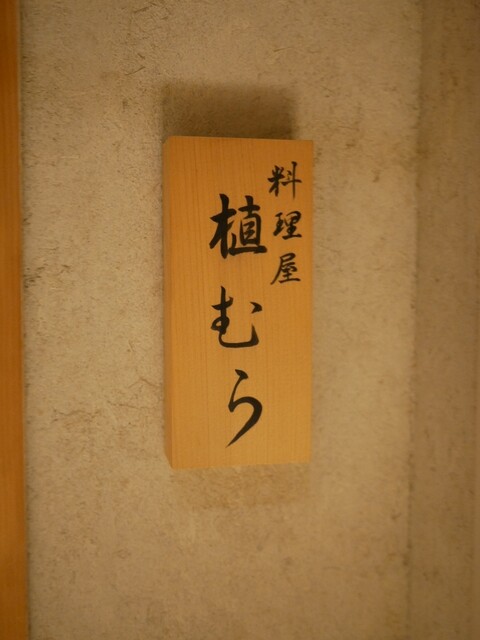 料理屋
植むら